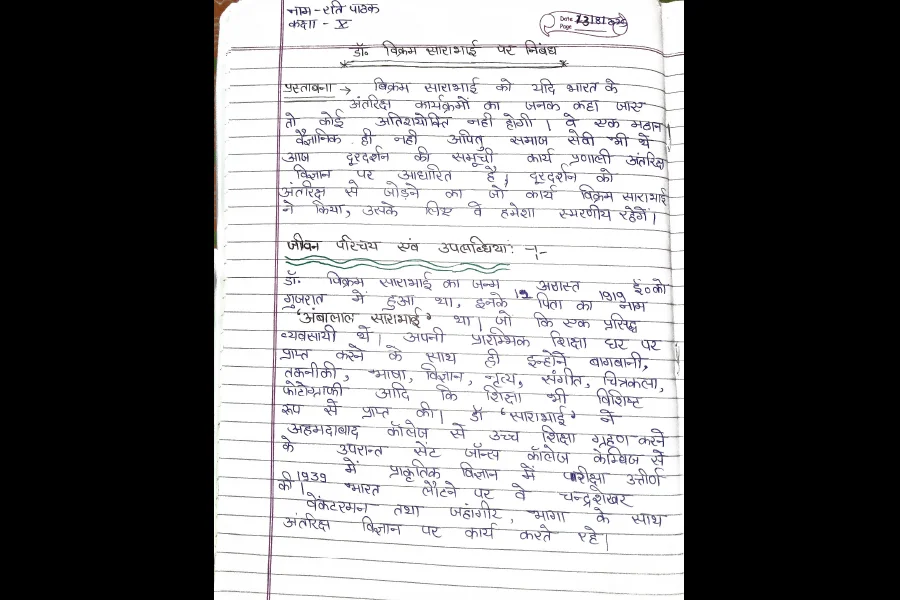 नाम - रति पाठक
कक्षा - X
Date
Page
डॉ. विक्रम साराभाई पर निबंध
प्रस्तावना → विक्रम साराभाई को यदि भारत के
अंतरिक्ष कार्यक्रमों का जनक कहा जाए
तो कोई अतिशयोक्ति नही होगी। वे एक महान
वैज्ञानिक ही नही अपितु समाज सेवी भी थे
आज दूरदर्शन की समूची कार्य प्रणाली अंतरिक्ष
विज्ञान पर आधारित है, दूरदर्शन को
अंतरिक्ष से जोड़ने का जो कार्य विक्रम साराभाई
ने किया, उसके लिए वे हमेशा स्मरणीय रहेगें।
जीवन परिचय एवं उपलब्धियाः -:-
डॉ. विक्रम साराभाई का जन्म 12 अगस्त 1919 ई॰को
गुजरात में हुआ था, इनके पिता का नाम
'अंबालाल साराभाई' था। जो कि एक प्रसिद्ध
व्यवसायी थें। अपनी प्रारम्भिक शिक्षा घर पर
प्राप्त करने के साथ ही इन्होने बागबानी,
तकनीकी, भाषा, विज्ञान, नृत्य, संगीत, चित्रकला,
फोटोग्राफी आदि कि शिक्षा भी विशिष्ट
रूप से प्राप्त की। डॉ 'साराभाई' ने
अहमदाबाद कॉलेज से उच्च शिक्षा ग्रहण करने
के उपरान्त सेंट जॉन्स कॉलेज केम्ब्रिज से
1939 में प्राकृतिक विज्ञान में परीक्षा उत्तीर्ण
की। भारत लौटने पर वे चन्द्रशेखर
वेंकटरमन तथा जहांगीर, भागा के साथ
अंतरिक्ष विज्ञान पर कार्य करते रहे।